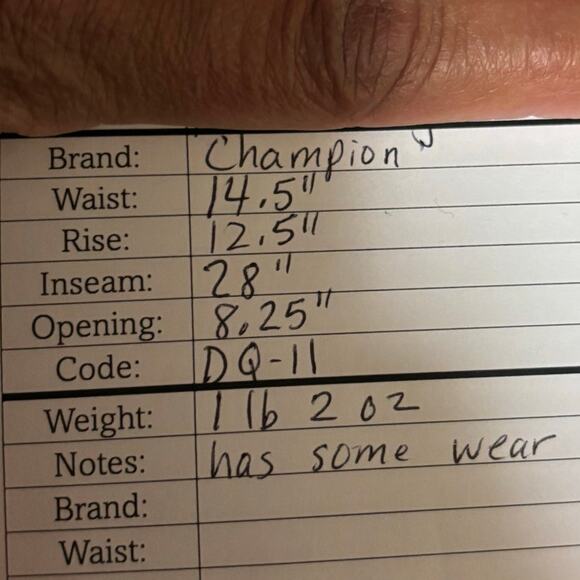 Brand: Champion
Waist: 14.5"
Rise: 12.5"
Inseam: 28"
Opening: 8.25"
Code: DQ-11
Weight: 1 lb 2 oz
Notes: has some wear
Brand:
Waist: